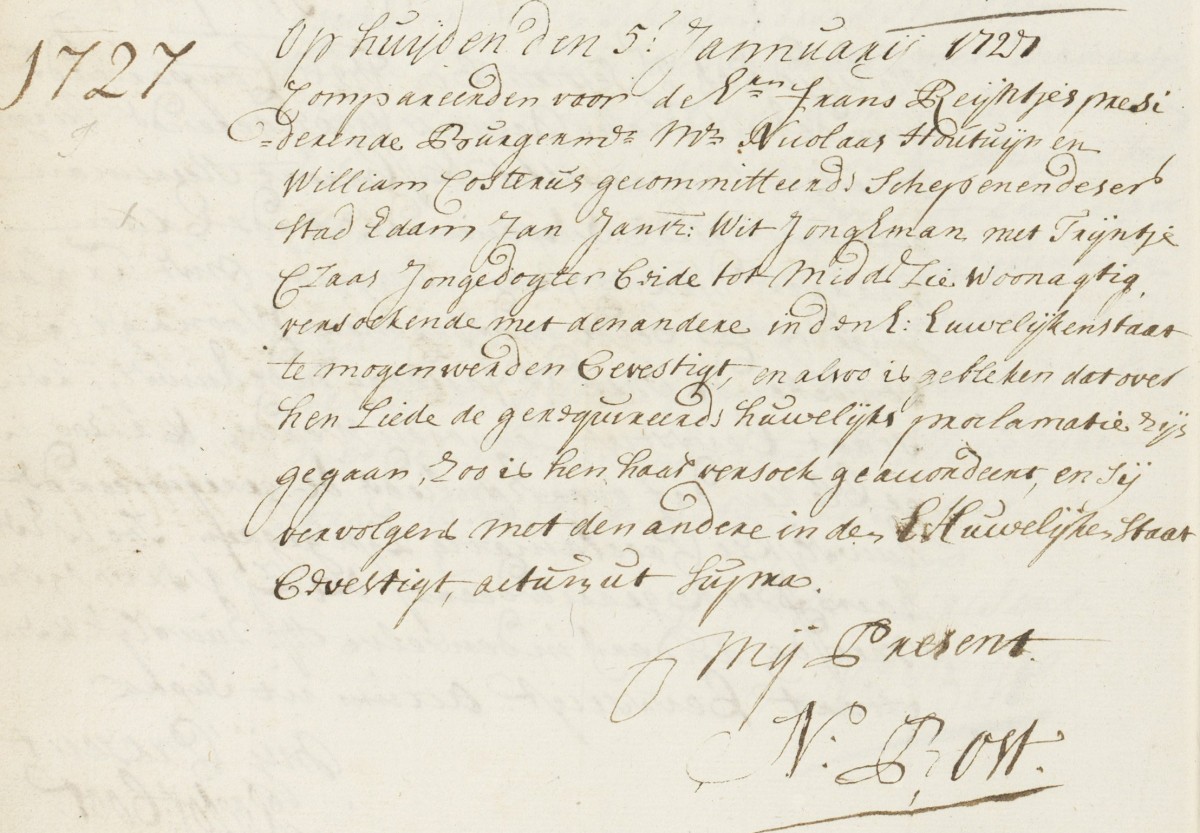 1727
Op huijden den 5e Jannuarij 1727
Compareerden voor de Ern Frans Reijntjes presi
=derende Burgermr Mr Nicolaas Houtuijn en
William Costerus gecommitteerde Schepenen deser
stad Edam, Jan Jantz: Wit JongEman met Trijntje
Claas Jongedogter beide tot Midd Lie woonagtig
versoekende met den andere in den E: Euwelijken staat
te mogen werden bevestigt, en alsoo is gebleken dat over
hen Liede de gerequireerde huwelijks proclamatie zijn
gegaan, zoo is hen haar versoek geaccordeert, en sij
vervolgens met den andere in den E Huwelijken staat
bevestigt, actum ut supra.
Mij Present
N. Bost.